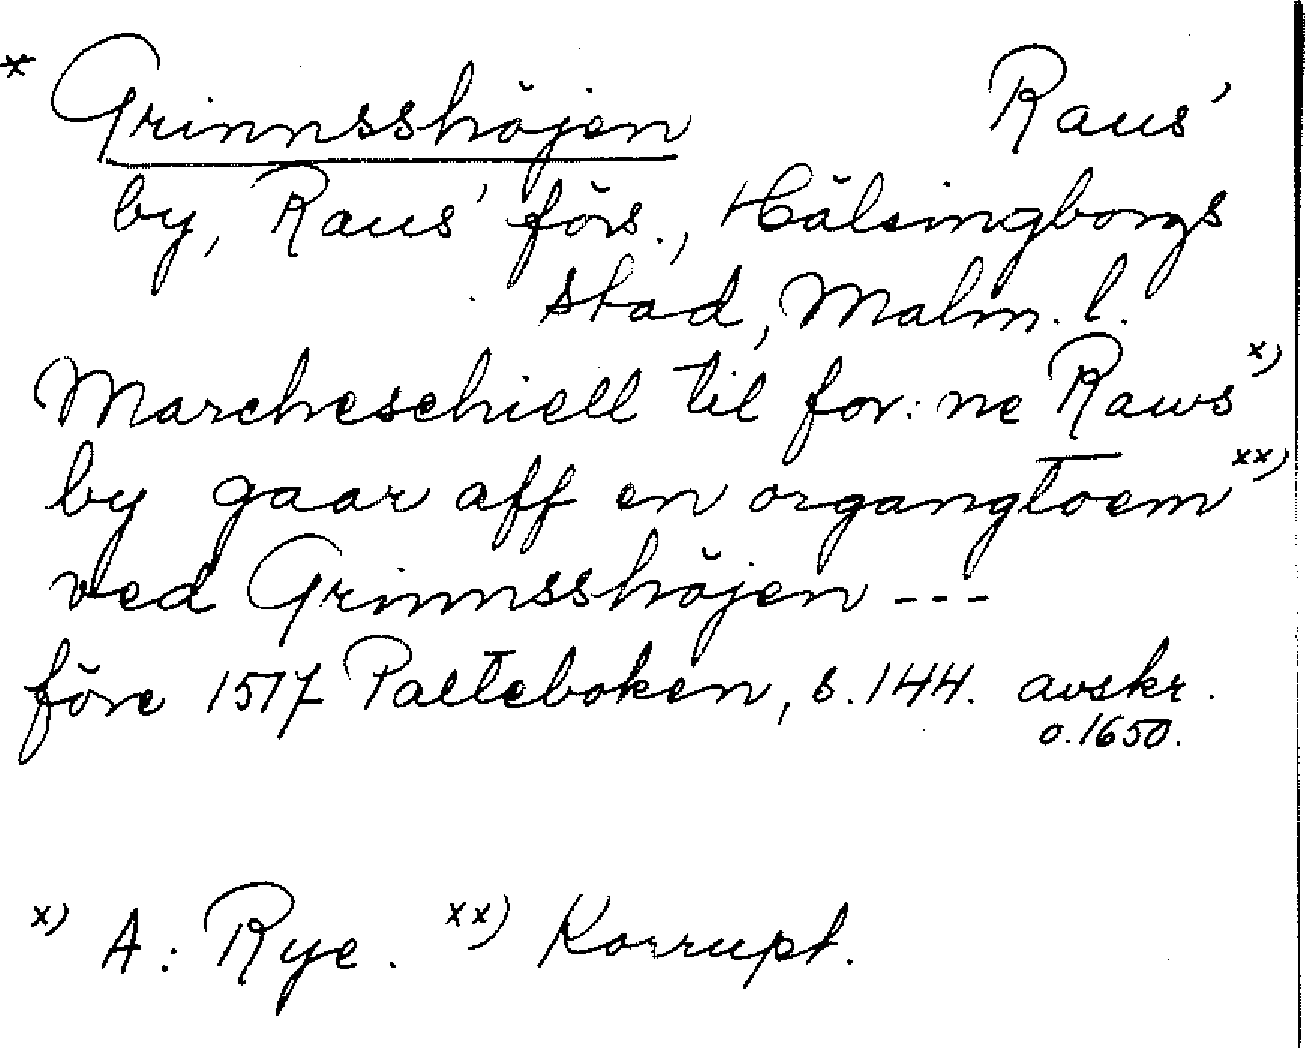 * Grinnsshöjen Raus'
by, Raus' förs., Hälsingborgs
stad, Malm. l.
Marcheschiell til for: ne Raws' x)
by gaar aff en organgtoem xx)
ved Grinnsshöjen ---
före 1517 Palteboken, s. 144. avskr.
o. 1650.
x) A: Rye. xx) Korrupt.